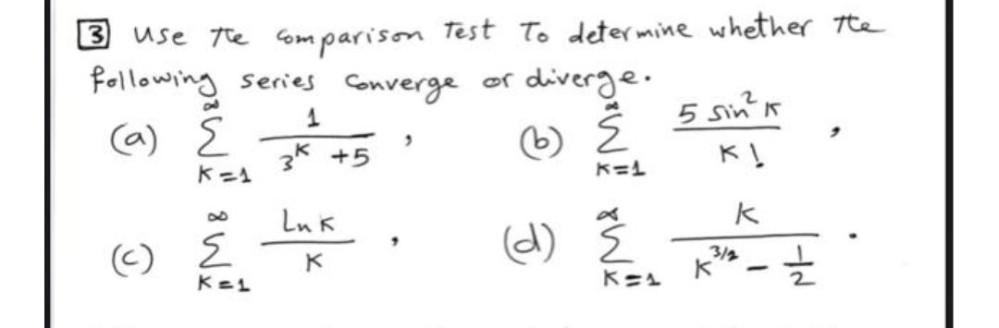 3 Use the comparison Test To determine whether the
following series converge or diverge.
(a) ∞ Σ K=1 1 / 3^K +5 , (b) ∞ Σ K=1 5 sin² K / K! ,
(c) ∞ Σ K=1 Ln K / K , (d) ∞ Σ K=1 K / K^3/2 - 1/2 .